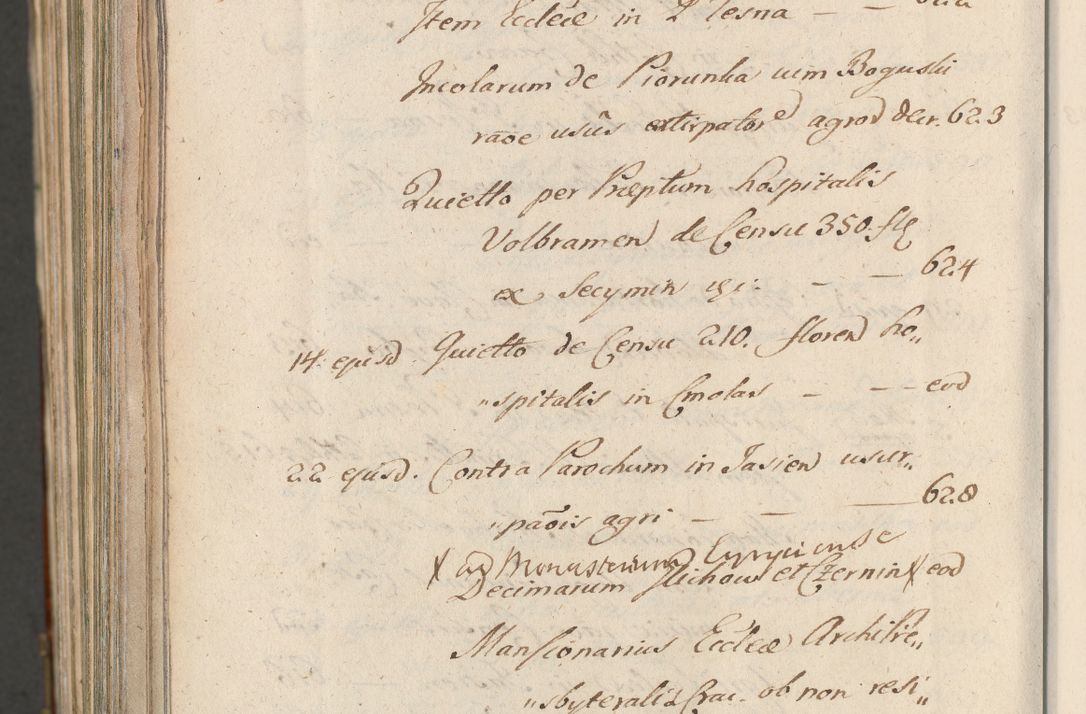 Item Eccl̃æ in Plesna — —
Incolarum de Piorunka cum Boguslii
rãoe usûs extirpator̃ agrod decr. 623
Quietto per Præptum hospitalis
Volbramen de Censu 350. fl
ex Secymin — — 624
14. ejusd. Quietto de Censu 210. floren ho„
„spitalis in Cmolas — — eod
22 ejusd. Contra Parochum in Jasien usur„
„paõis agri — — — 628
X ad Monasterium Tynyciense
Decimarum Stichow et Czernin X eod
Mansionarius Eccleæ ArchiPre„
„sbyteralis Crac. ob non resi„